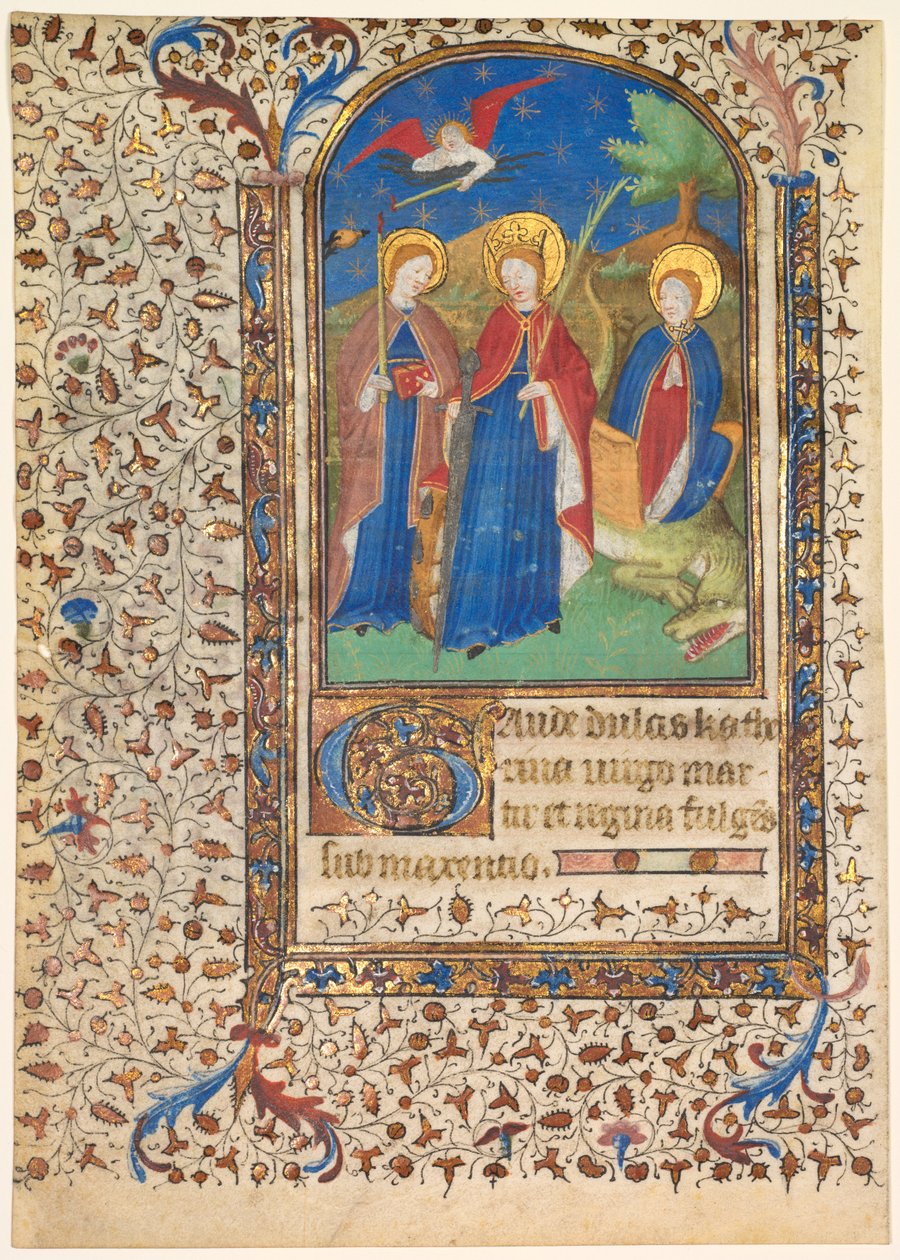 Gaude dulcis kathe
rina uirgo mar-
tir et regina fulgēs
sub maxencio.